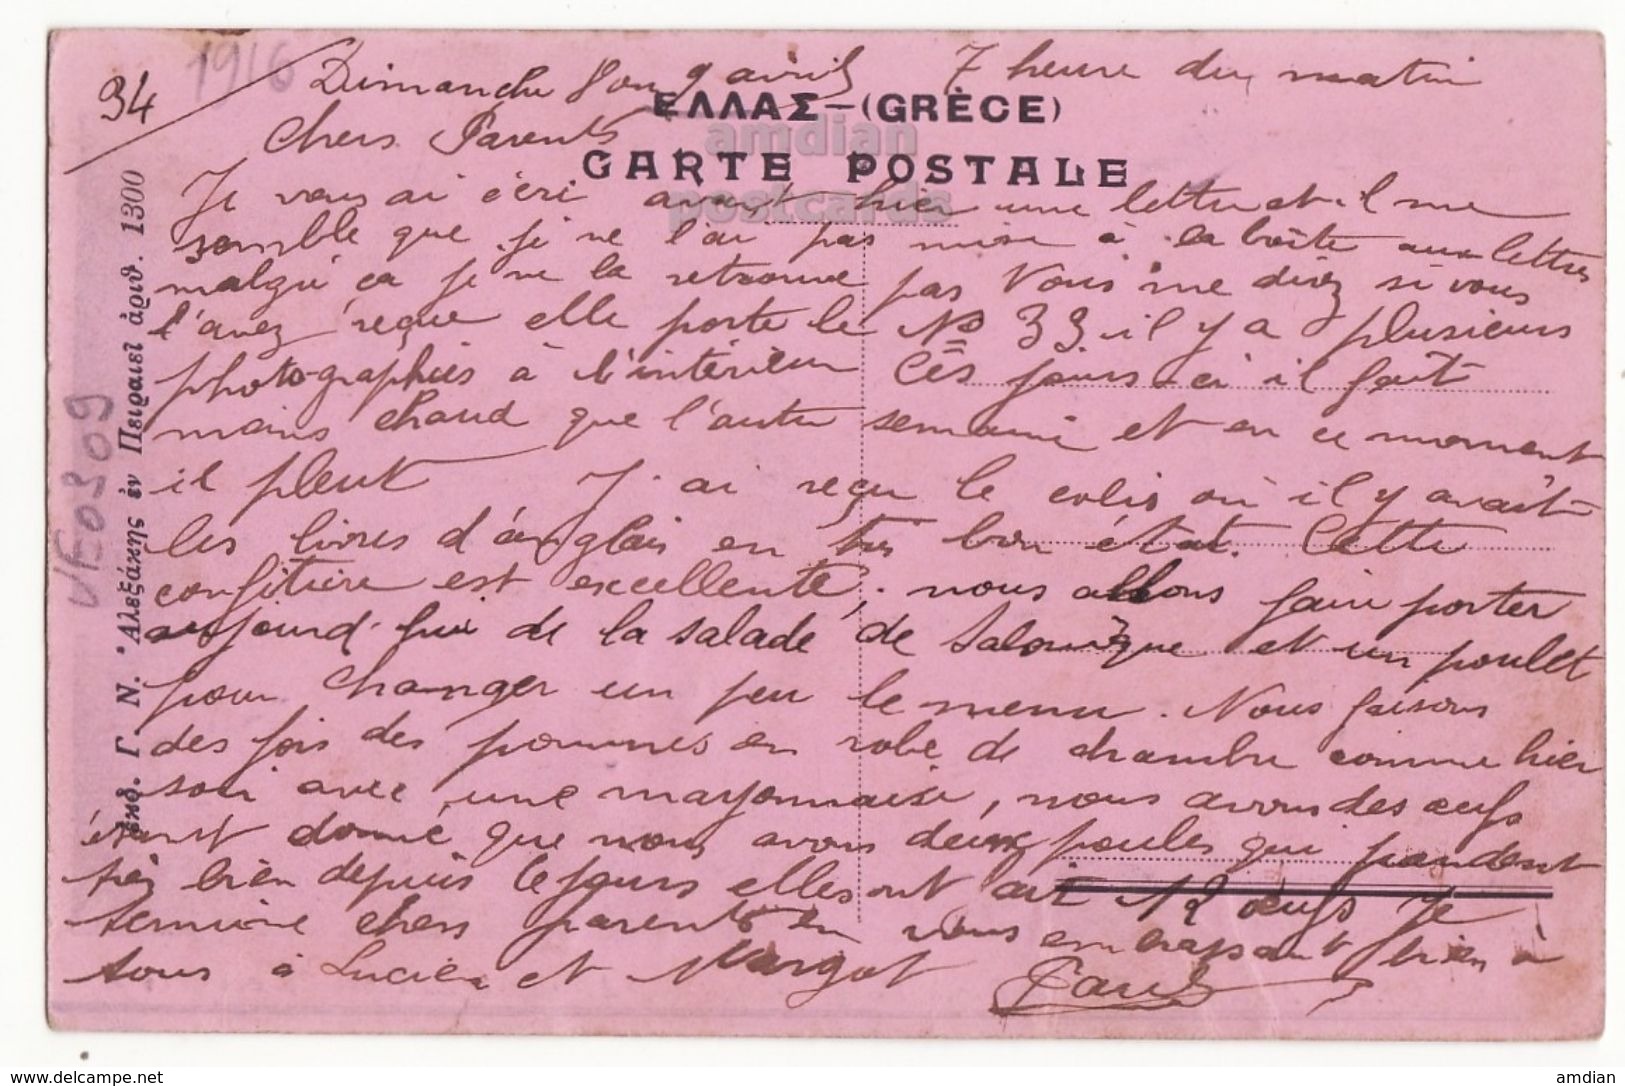 1916
34
Dimanche 9 avril 7 heure du matin
ΕΛΛΑΣ–(GRÈCE)
Chers Parents
amdian
CARTE POSTALE
postcards
Je vous ai écri avant hier une lettre et il me
semble que je ne l'ai pas mise à la boîte aux lettres
malgré ça je ne la retrouve pas Vous me direz si vous
l'avez reçue elle porte le No 33 il y a plusieurs
photographies à l'intérieur Ces jours ci il fait
moins chaud que l'autre semaine et en ce moment
il pleut J'ai reçu le colis où il y avait
les livres d'anglais en très bon état. Cette
confiture est excellente, nous allons faire porter
aujourd'hui de la salade de Salonique et un poulet
pour changer un peu le menu. Nous faisons
des fois des pommes en robe de chambre comme hier
soir avec une mayonnaise, nous avons des œufs
étant donné que nous avons deux poules qui pondent
très bien depuis jours elles ont 12 œufs Je
termine chers parents en vous embrassant bien à
tous à Lucien et Margot Paul
ἐκδ. Γ. Ν. Ἀλεξάκης ἐν Πειραιεῖ ἀριθ. 1300
VF0309
www.delcampe.net
amdian